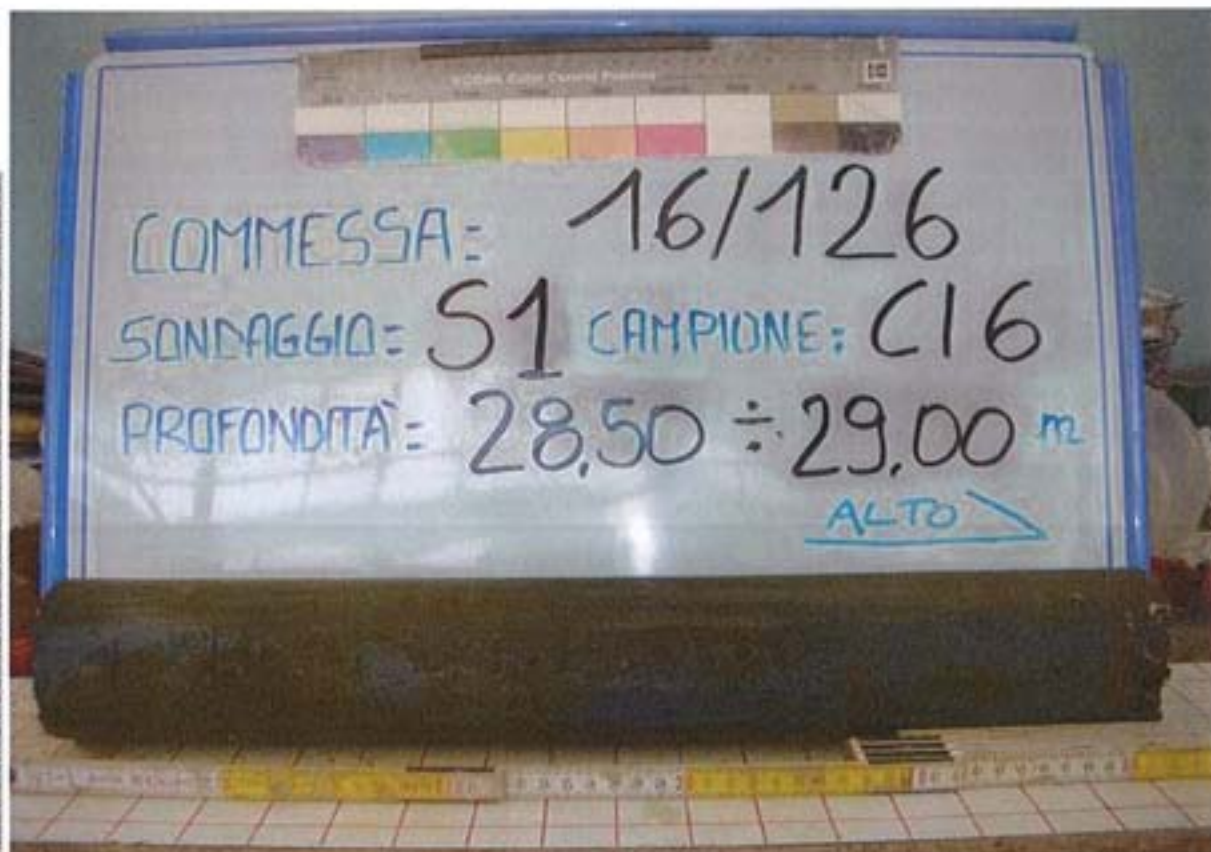 KODAK Color Control Patches
COMMESSA: 16/126
SONDAGGIO: S1 CAMPIONE: CI6
PROFONDITÀ: 28,50 ÷ 29,00 m
ALTO